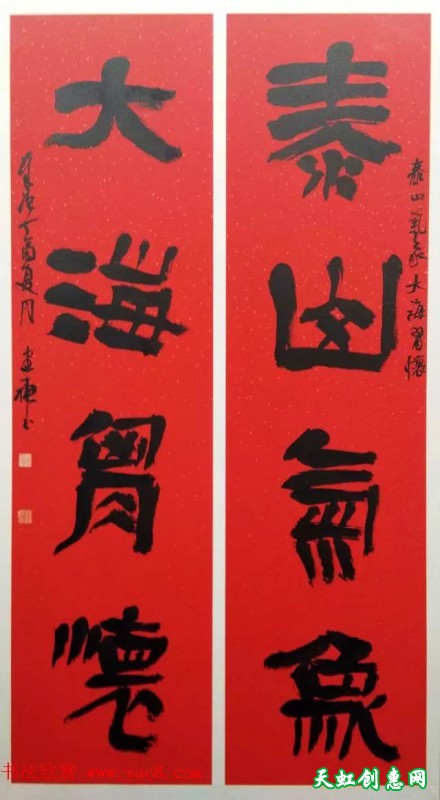 泰山氣象
泰山氣象大海胷懷
大海胷懷
丁酉夏月
书法欣赏 www.yac8.com
天虹创惠网